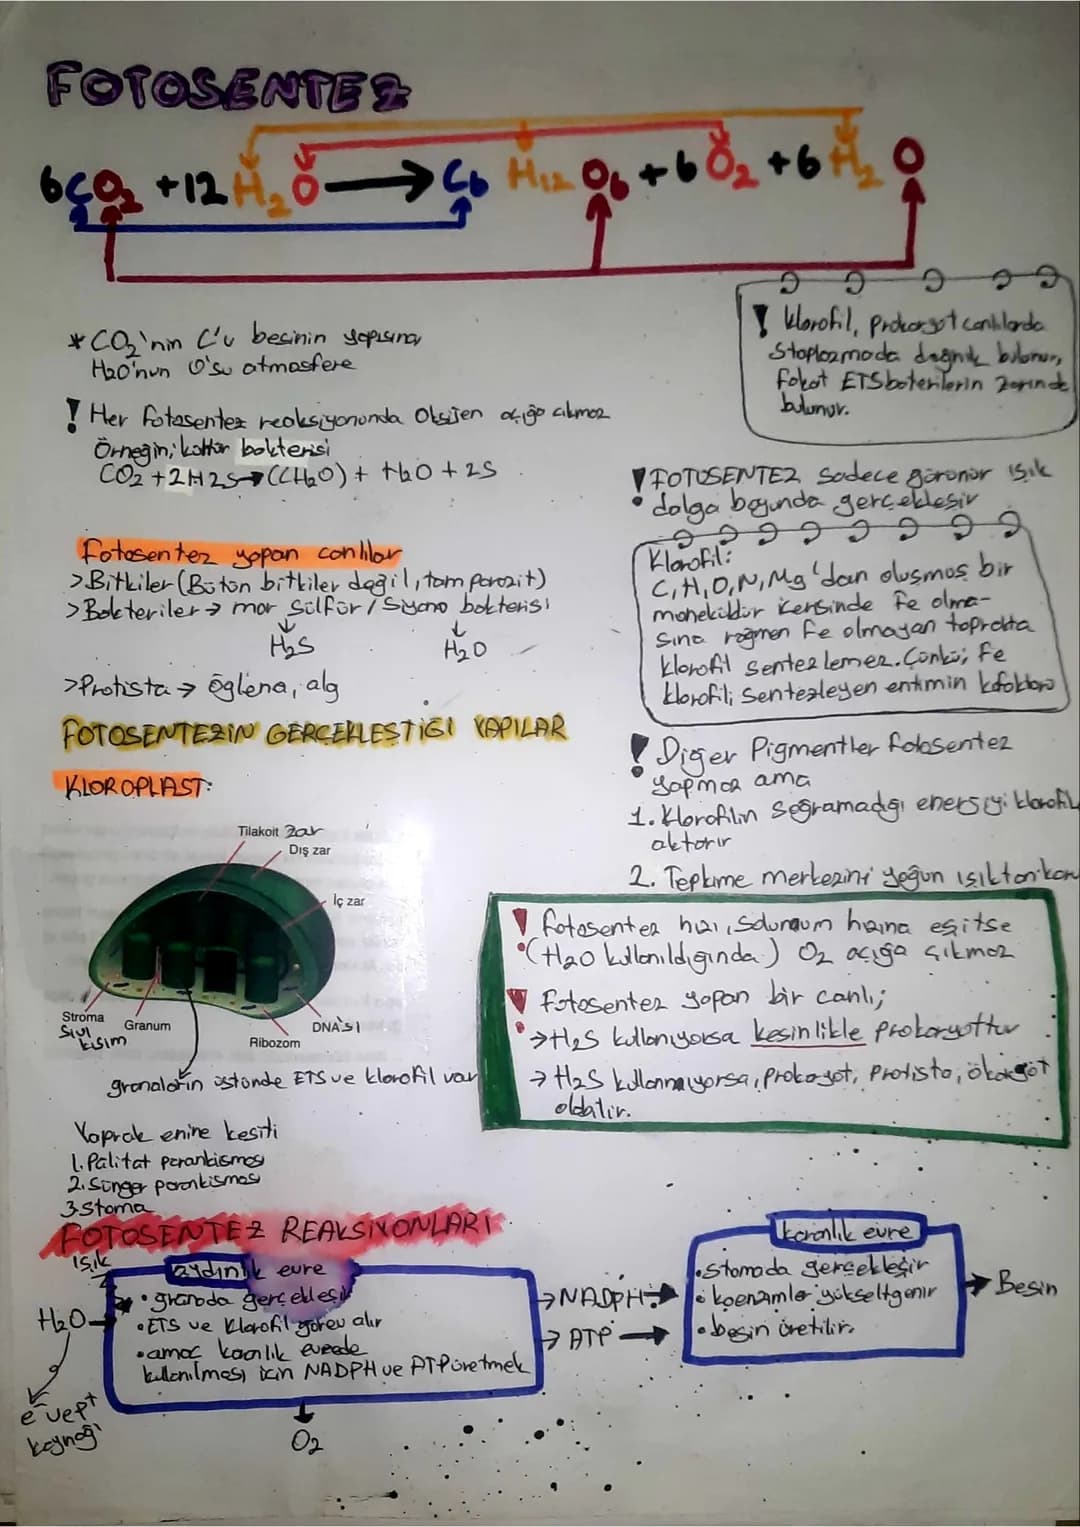 FOTOSENTEZ
6CO2 + 12 H2O → C6 H12 O6 + 6 O2 + 6 H2O
* CO2'nin C'u besinin yapısına
H2O'nun O'su atmosfere
! Klorofil, Prokaryot canlılarda
Stoplazmada dağınık bulunur,
fakat ETS bakterilerin zarında
bulunur.
! Her fotosentez reaksiyonunda Oksijen açığa çıkmaz
Örneğin; kükürt bakterisi
CO2 + 2H2S → (CH2O) + H2O + 2S
! FOTOSENTEZ Sadece görünür ışık
dalga boyunda gerçekleşir
Klorofil:
C, H, O, N, Mg'dan oluşmuş bir
moneküldür içersinde Fe olma-
sına rağmen Fe olmayan toprakta
klorofil sentezlemez. Çünkü; Fe
klorofili sentezleyen entimin kofaktörü
Fotosentez yapan canlılar
> Bitkiler (Bütün bitkiler değil, tam parozit)
> Bakteriler → mor Sülfür / Siyano bakterisi
H2S H2O
> Protista → öglena, alg
FOTOSENTEZİN GERÇEKLEŞTİĞİ YAPILAR
KLOROPLAST:
! Diğer Pigmentler fotosentez
yapmaz ama
1. Klorofilin soğramadığı enerjiyi klorofile
aktarır
2. Tepkime merkezini yoğun ışıktan koru
Tilakoit zar
Dış zar
İç zar
Stroma
Sıvı kısım
Granum
Ribozom
DNA'sı
granaların üstünde ETS ve klorofil var
! fotosentez hızı, solunum hızına eşitse
(H2O kullanıldığında) O2 açığa çıkmaz
! Fotosentez yapan bir canlı;
→ H2S kullanıyorsa kesinlikle Prokaryottur
→ H2S kullanmıyorsa, Prokaryot, Protista, ökaryot
olabilir.
Yaprak enine kesiti
1. Palitat parankisması
2. Sünger parankisması
3. Stoma
FOTOSENTEZ REAKSİYONLARI
Işık
H2O
e⁻ ve p⁺
kaynağı
aydınlık evre
• granada gerçekleşir
• ETS ve Klorofil görev alır
• amaç karanlık evrede
kullanılması için NADPH ve ATP üretmek
O2
→ NADPH →
→ ATP →
karanlık evre
• stomada gerçekleşir
• koenzimler yükseltgenir
• besin üretilir.
→ Besin